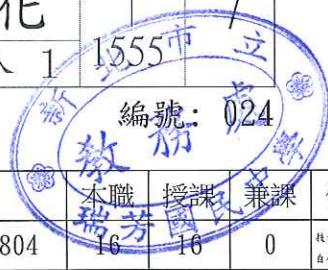 化
人 1 1555
編號: 024
新北市立瑞芳國民中學
教務處
本職 授課 兼課
804 16 16 0